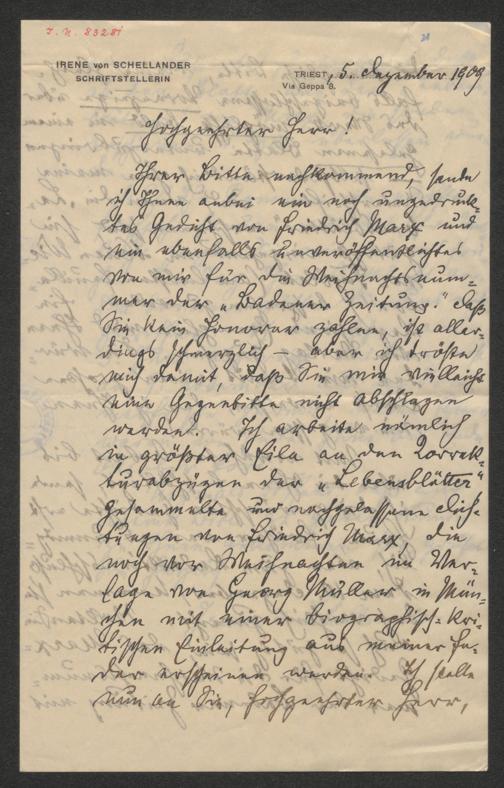 J. N. 83281
IRENE von SCHELLANDER
SCHRIFTSTELLERIN
TRIEST, 5. Dezember 1909
Via Geppa 8.
Hochgeehrter Herr!
Ihrer Bitte nachkommend, sende
ich Ihnen anbei ein noch ungedruck-
tes Gedicht von Friedrich Marx und
ein ebenfalls unveröffentlichtes
von mir für die Weihnachtsnum-
mer der „Badener Zeitung". Daß
Sie kein Honorar zahlen, ist aller-
dings schmerzlich – aber ich tröste
mich damit, daß Sie mir vielleicht
eine Gegenbitte nicht abschlagen
werden. Ich arbeite nämlich
in größter Eile an den Korrek-
turabzügen der „Lebensblätter"
Gesammelte und nachgelassene Dich-
tungen von Friedrich Marx die
noch vor Weihnachten im Ver-
lage von Georg Müller in Mün-
chen mit einer biographisch-kri-
tischen Einleitung aus meiner Fe-
der erscheinen werden. Ich stelle
nun an Sie, hochgeehrter Herr,